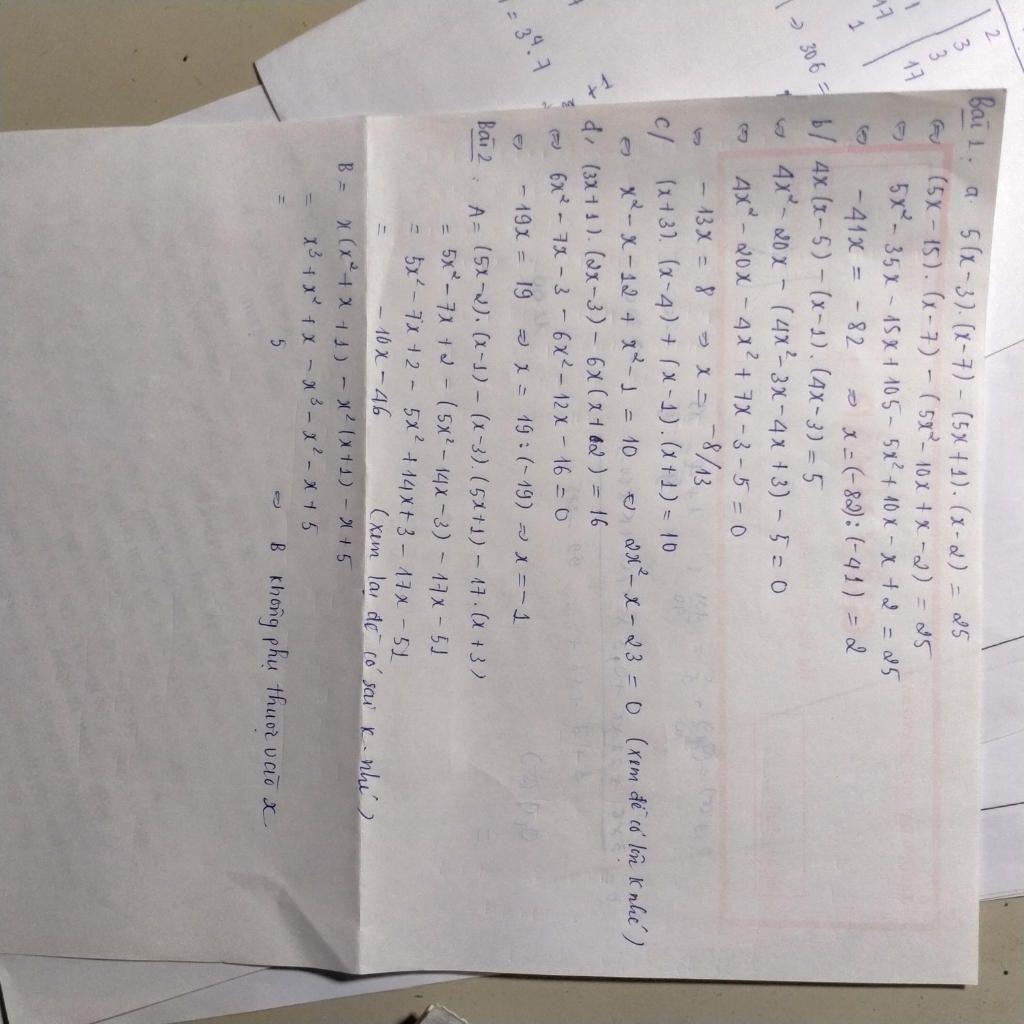 = 3⁴.7
⇒ 306 =
17
1
2
3
3
17
Bài 1: a. 5(x-3).(x-7) - (5x+1).(x-2) = 25
⇔ (5x-15).(x-7) - (5x²-10x+x-2) = 25
⇔ 5x²-35x-15x+105-5x²+10x-x+2 = 25
⇔ -41x = -82 ⇒ x=(-82):(-41) = 2
b/ 4x(x-5)-(x-1).(4x-3) = 5
⇔ 4x²-20x-(4x²-3x-4x+3)-5=0
⇔ 4x²-20x-4x²+7x-3-5=0
⇔ -13x = 8 ⇒ x = -8/13
c/ (x+3).(x-4)+(x-1).(x+1)=10
⇔ x²-x-12+x²-1=10 ⇔ 2x²-x-23=0 (xem đề có lộn k nhé)
d, (3x+1).(2x-3)-6x(x+2)=16
⇔ 6x²-7x-3-6x²-12x-16=0
⇔ -19x = 19 ⇒ x = 19:(-19) ⇒ x=-1
Bài 2: A= (5x-2).(x-1)-(x-3).(5x+1)-17.(x+3)
= 5x²-7x+2-(5x²-14x-3)-17x-51
= 5x²-7x+2-5x²+14x+3-17x-51
= -10x-46 (xem lại đề có sai k nhé)
B= x(x²+x+1)-x²(x+1)-x+5
= x³+x²+x-x³-x²-x+5
= 5 ⇒ B không phụ thuộc vào x